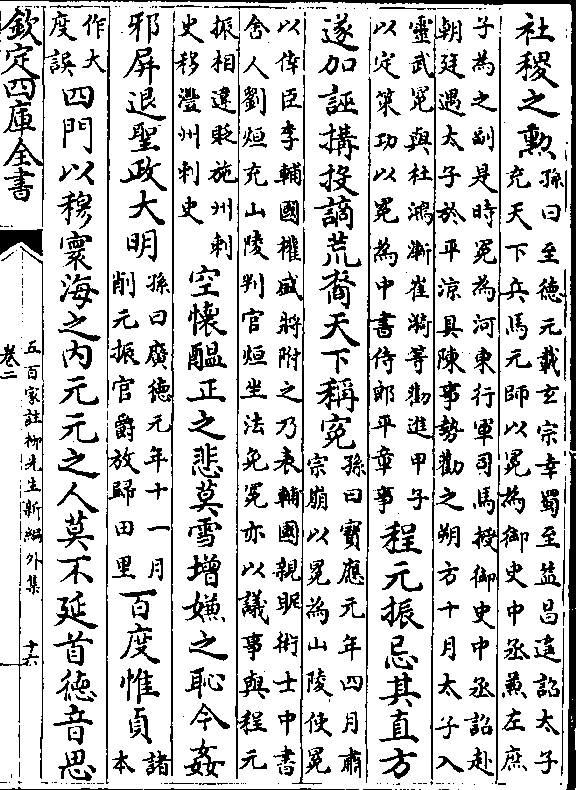 社稷之勲孫曰至德元載玄宗幸蜀至益昌遠詔太子充天下兵馬元帥以冕為御史中丞兼左庶
子為之副是時冕為河東行軍司馬授御史中丞詔赴朝廷遇太子於平涼具陳事勢勸之朔方十月太子入
靈武冕與杜鴻漸崔漪等勸進甲子以定策功以冕為中書侍郎平章事程元振忌其直方
遂加誣搆投謫荒裔天下稱寃孫曰寳應元年四月肅宗崩以冕為山陵使冕
以倖臣李輔國權盛將附之乃表輔國親眤術士中書舍人劉烜充山陵判官烜坐法免冕亦以議事與程元
振相違貶施州刺史移灃州刺史空懷醖正之悲莫雪增嫌之恥今姦
邪屏退聖政大明孫曰廣德元年十一月削元振官爵放歸田里百度惟貞諸本
作大度誤四門以穆寰海之内元元之人莫不延首德音思
欽定四庫全書
五百家註柳先生新編外集
卷二
十六